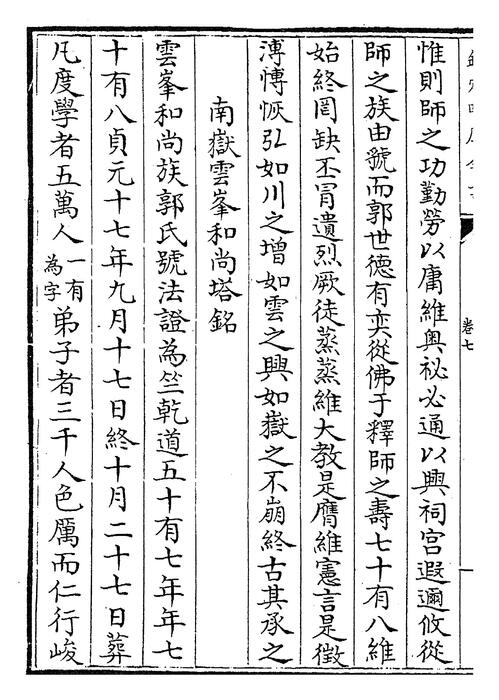 惟則師之功勤勞以庸維奥祕必通以興祠宫遐邇攸從
師之族由虢而郭世徳有奕從佛于釋師之壽七十有八維
始終罔缺丕冐遺烈厥徒蒸蒸維大教是膺維憲言是徴
溥博恢弘如川之增如雲之興如嶽之不崩終古其承之
南嶽雲峯和尚塔銘
雲峯和尚族郭氏號法證為竺乾道五十有七年年七
十有八貞元十七年九月十七日終十月二十七日葬
凡度學者五萬人一有為字弟子者三千人色厲而仁行峻
卷七